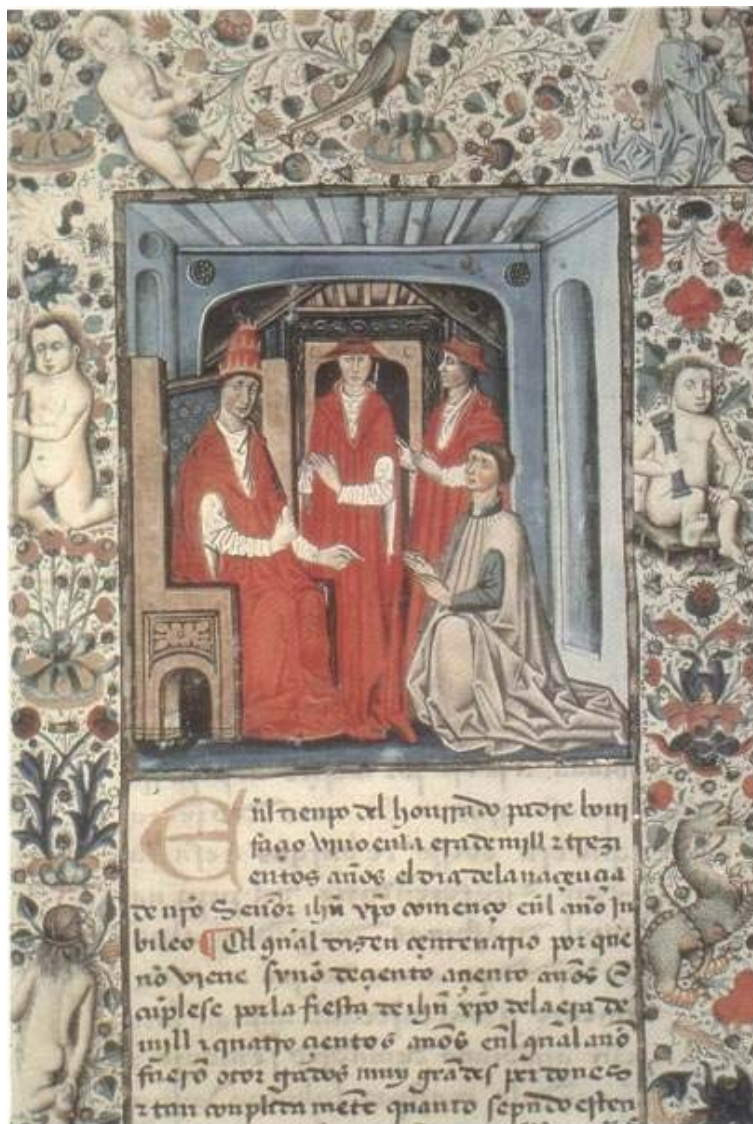 En̄l tienpo del honrrado padre boni
façio vino en la era de mill ⁊ trezi
entos años el dia de la naçençia
de nr̄o Señor ihũ xp̄o començo en̄l año Ju
bileo ¶ El qual disen çentenario por que
nõ viene synõ de çiento a çiento años E
cũplese por la fiesta de ihũ xp̄o de la era de
mill ⁊ quatroçientos años en̄l qual año
fuerõ otorgados muy grãdes perdones
⁊ tan conplida mẽte quanto segundo esten